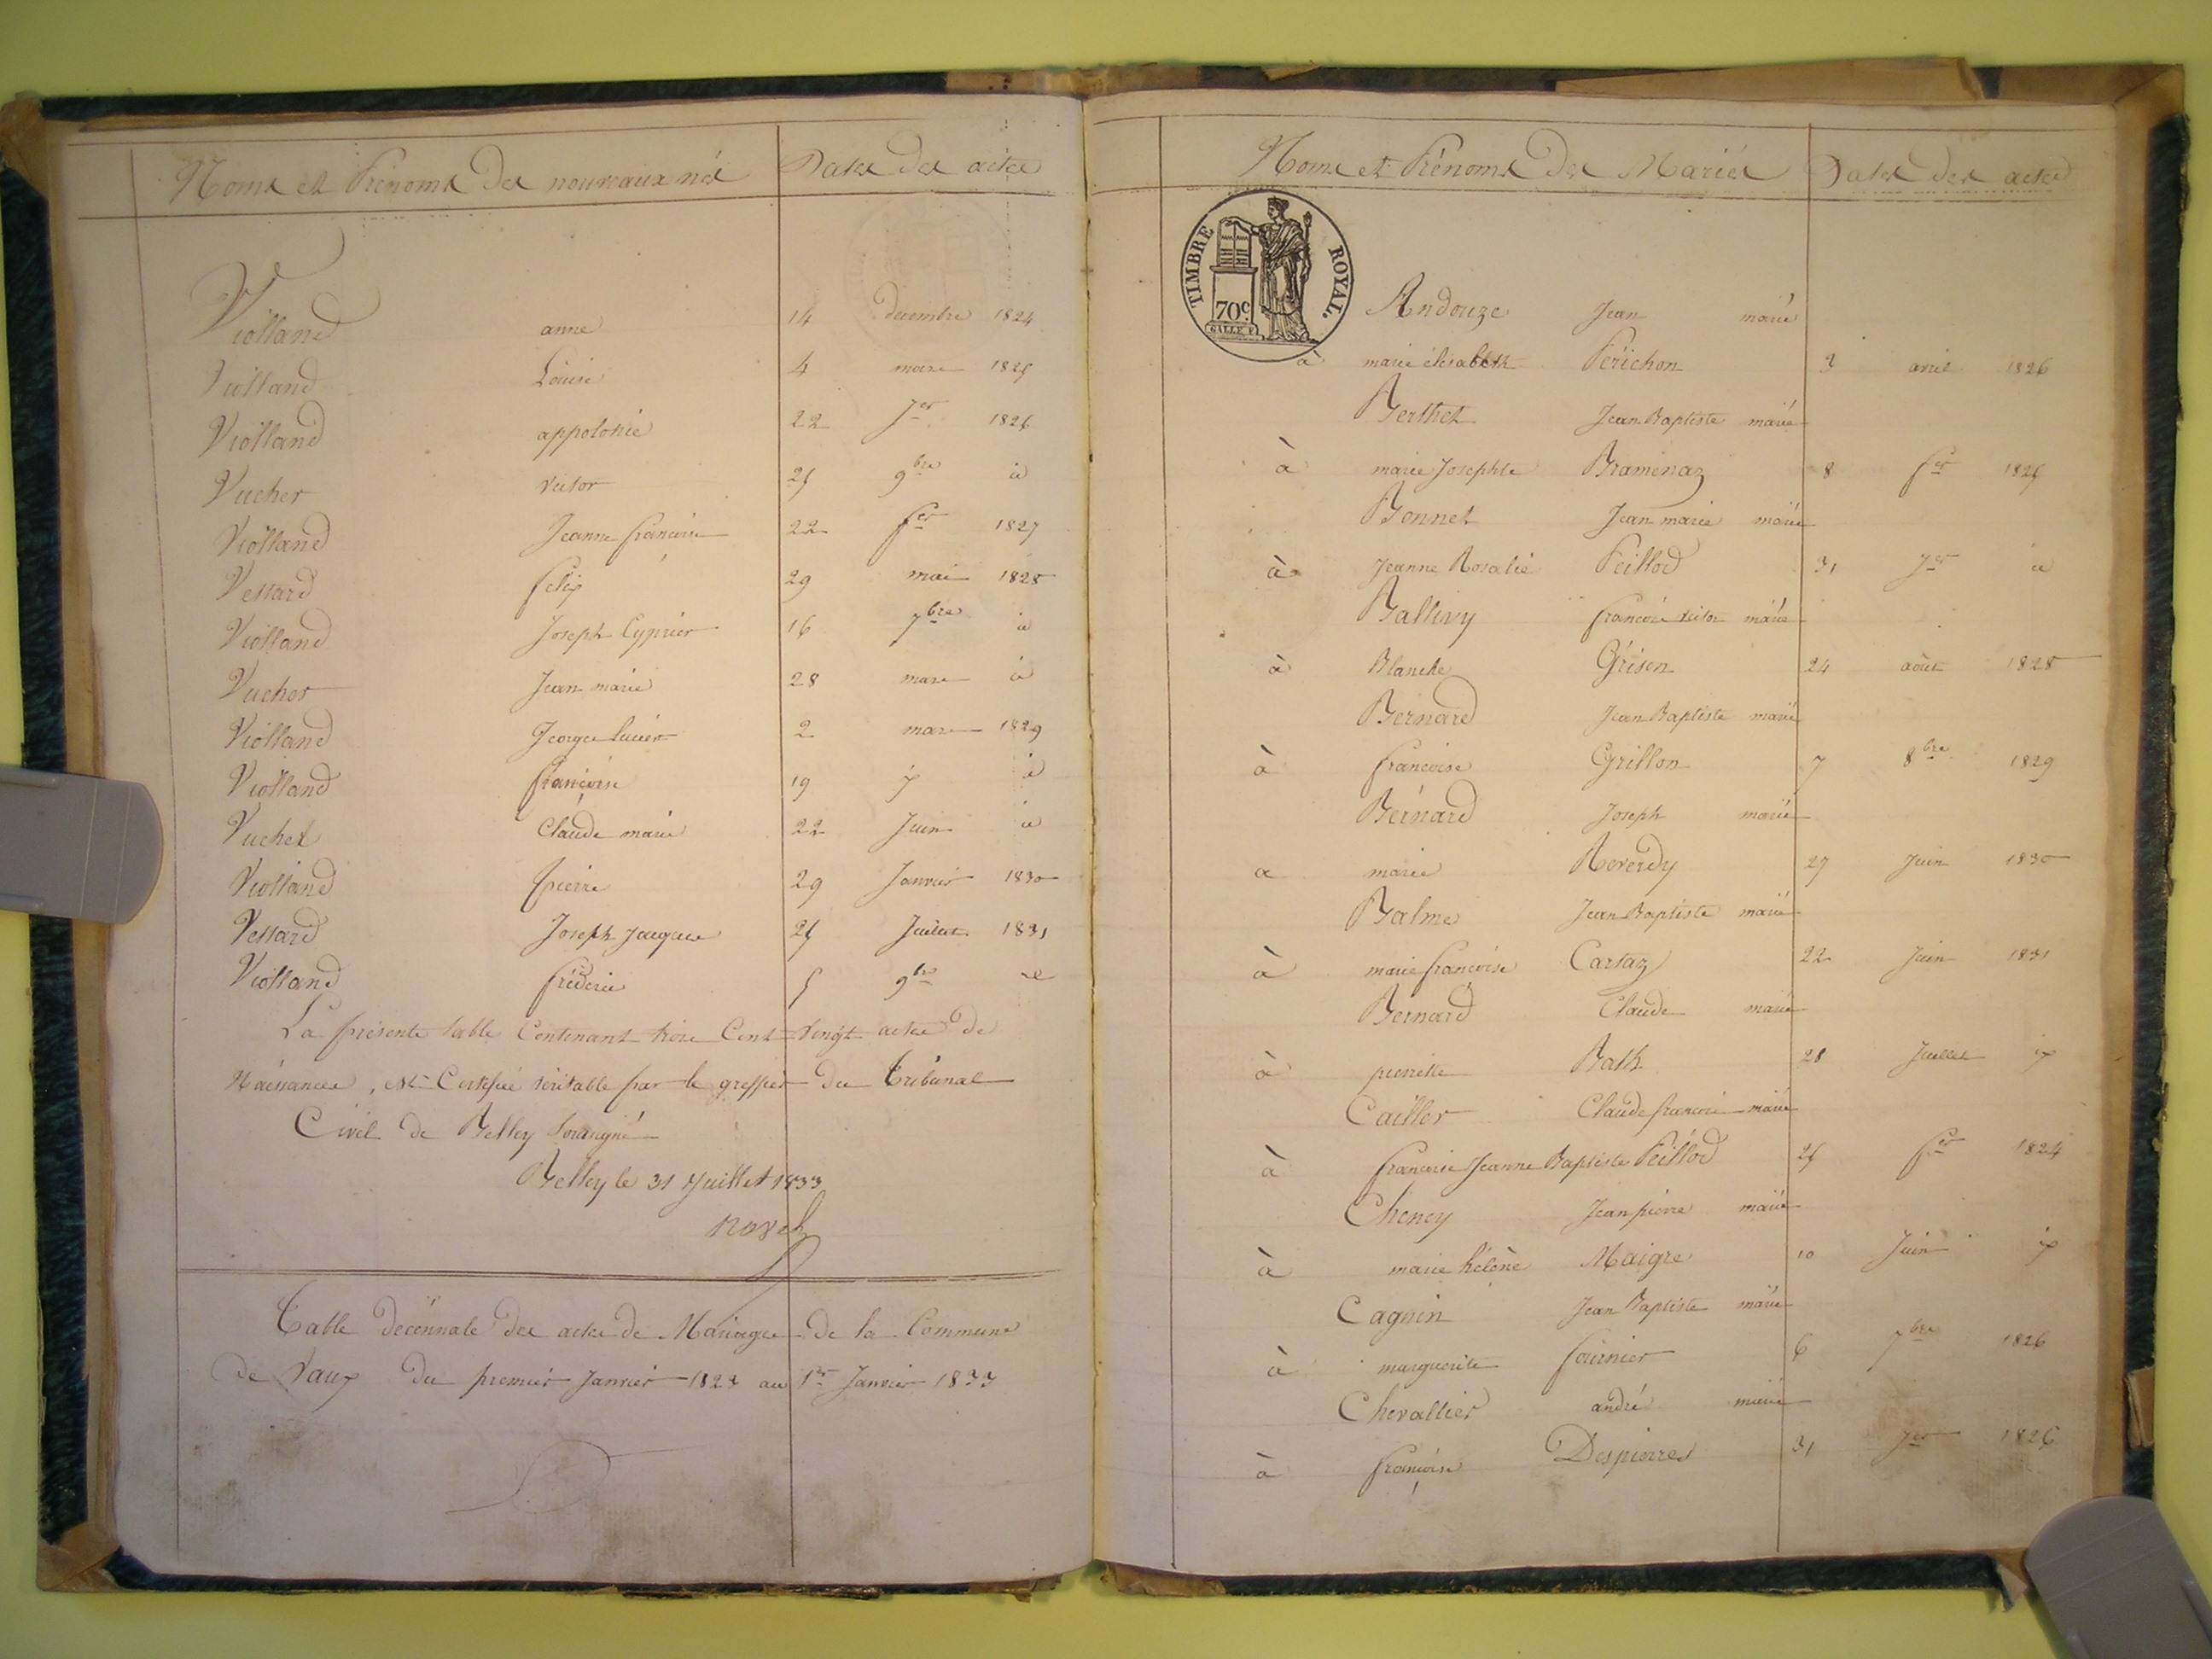 Noms et Prénoms des nouveaux nés Dates des actes
Violland anne 14 decembre 1824
Violland Louise 4 mars 1825
Violland appolonie 22 jer 1826
Vucher victor 25 9bre id
Violland Jeanne françoise 22 fer 1827
Vessard felix 29 mai 1828
Violland Joseph Cyprien 16 7bre id
Vucher Jean marie 28 mars id
Violland George lucien 2 mars 1829
Violland françoise 19 id
Vucher Claude marie 22 Juin id
Violland pierre 29 Janvier 1830
Vessard Joseph Jacques 25 Juillet 1831
Violland fréderic 5 9bre id
La présente table Contenant trois Cent Vingt actes de
Naissances, est Certifiée véritable par le greffier du Tribunal
Civil de Belley soussigné
Belley le 31 Juillet 1833
Table Décennale des actes de Mariages de la Commune
de Vaux du premier Janvier 1823 au 1er Janvier 1833
Noms et Prénoms des Mariés Dates des actes
TIMBRE ROYAL.
70c
Andouze Jean marié
à marie élisabeth Perichon 3 avril 1826
Berthet Jean Baptiste marié
à marie Josephte Braminaz 8 fer 1825
Bonnet Jean marie marié
à Jeanne Rosalie Peillod 31 jer id
Ballivy françois victor marié
à Blanche Grisen 24 août 1828
Bernard Jean Baptiste marié
à françoise Grillon 7 8bre 1829
Bernard Joseph marié
a marie Reverdy 27 Juin 1830
Balme Jean Baptiste marié
à marie françoise Cartaz 22 Juin 1831
Bernard Claude marié
à pierrette Bath 28 Juillet id
Caillos Claude françois marié
à françoise Jeanne Baptiste Peillod 25 fer 1824
Cheney Jean pierre marié
à marie hélène Maigre 10 Juin id
Cagnin Jean Baptiste marié
à marguerite fournier 6 7bre 1826
Chevallier andré marié
à françoise Despierres 31 jer 1826